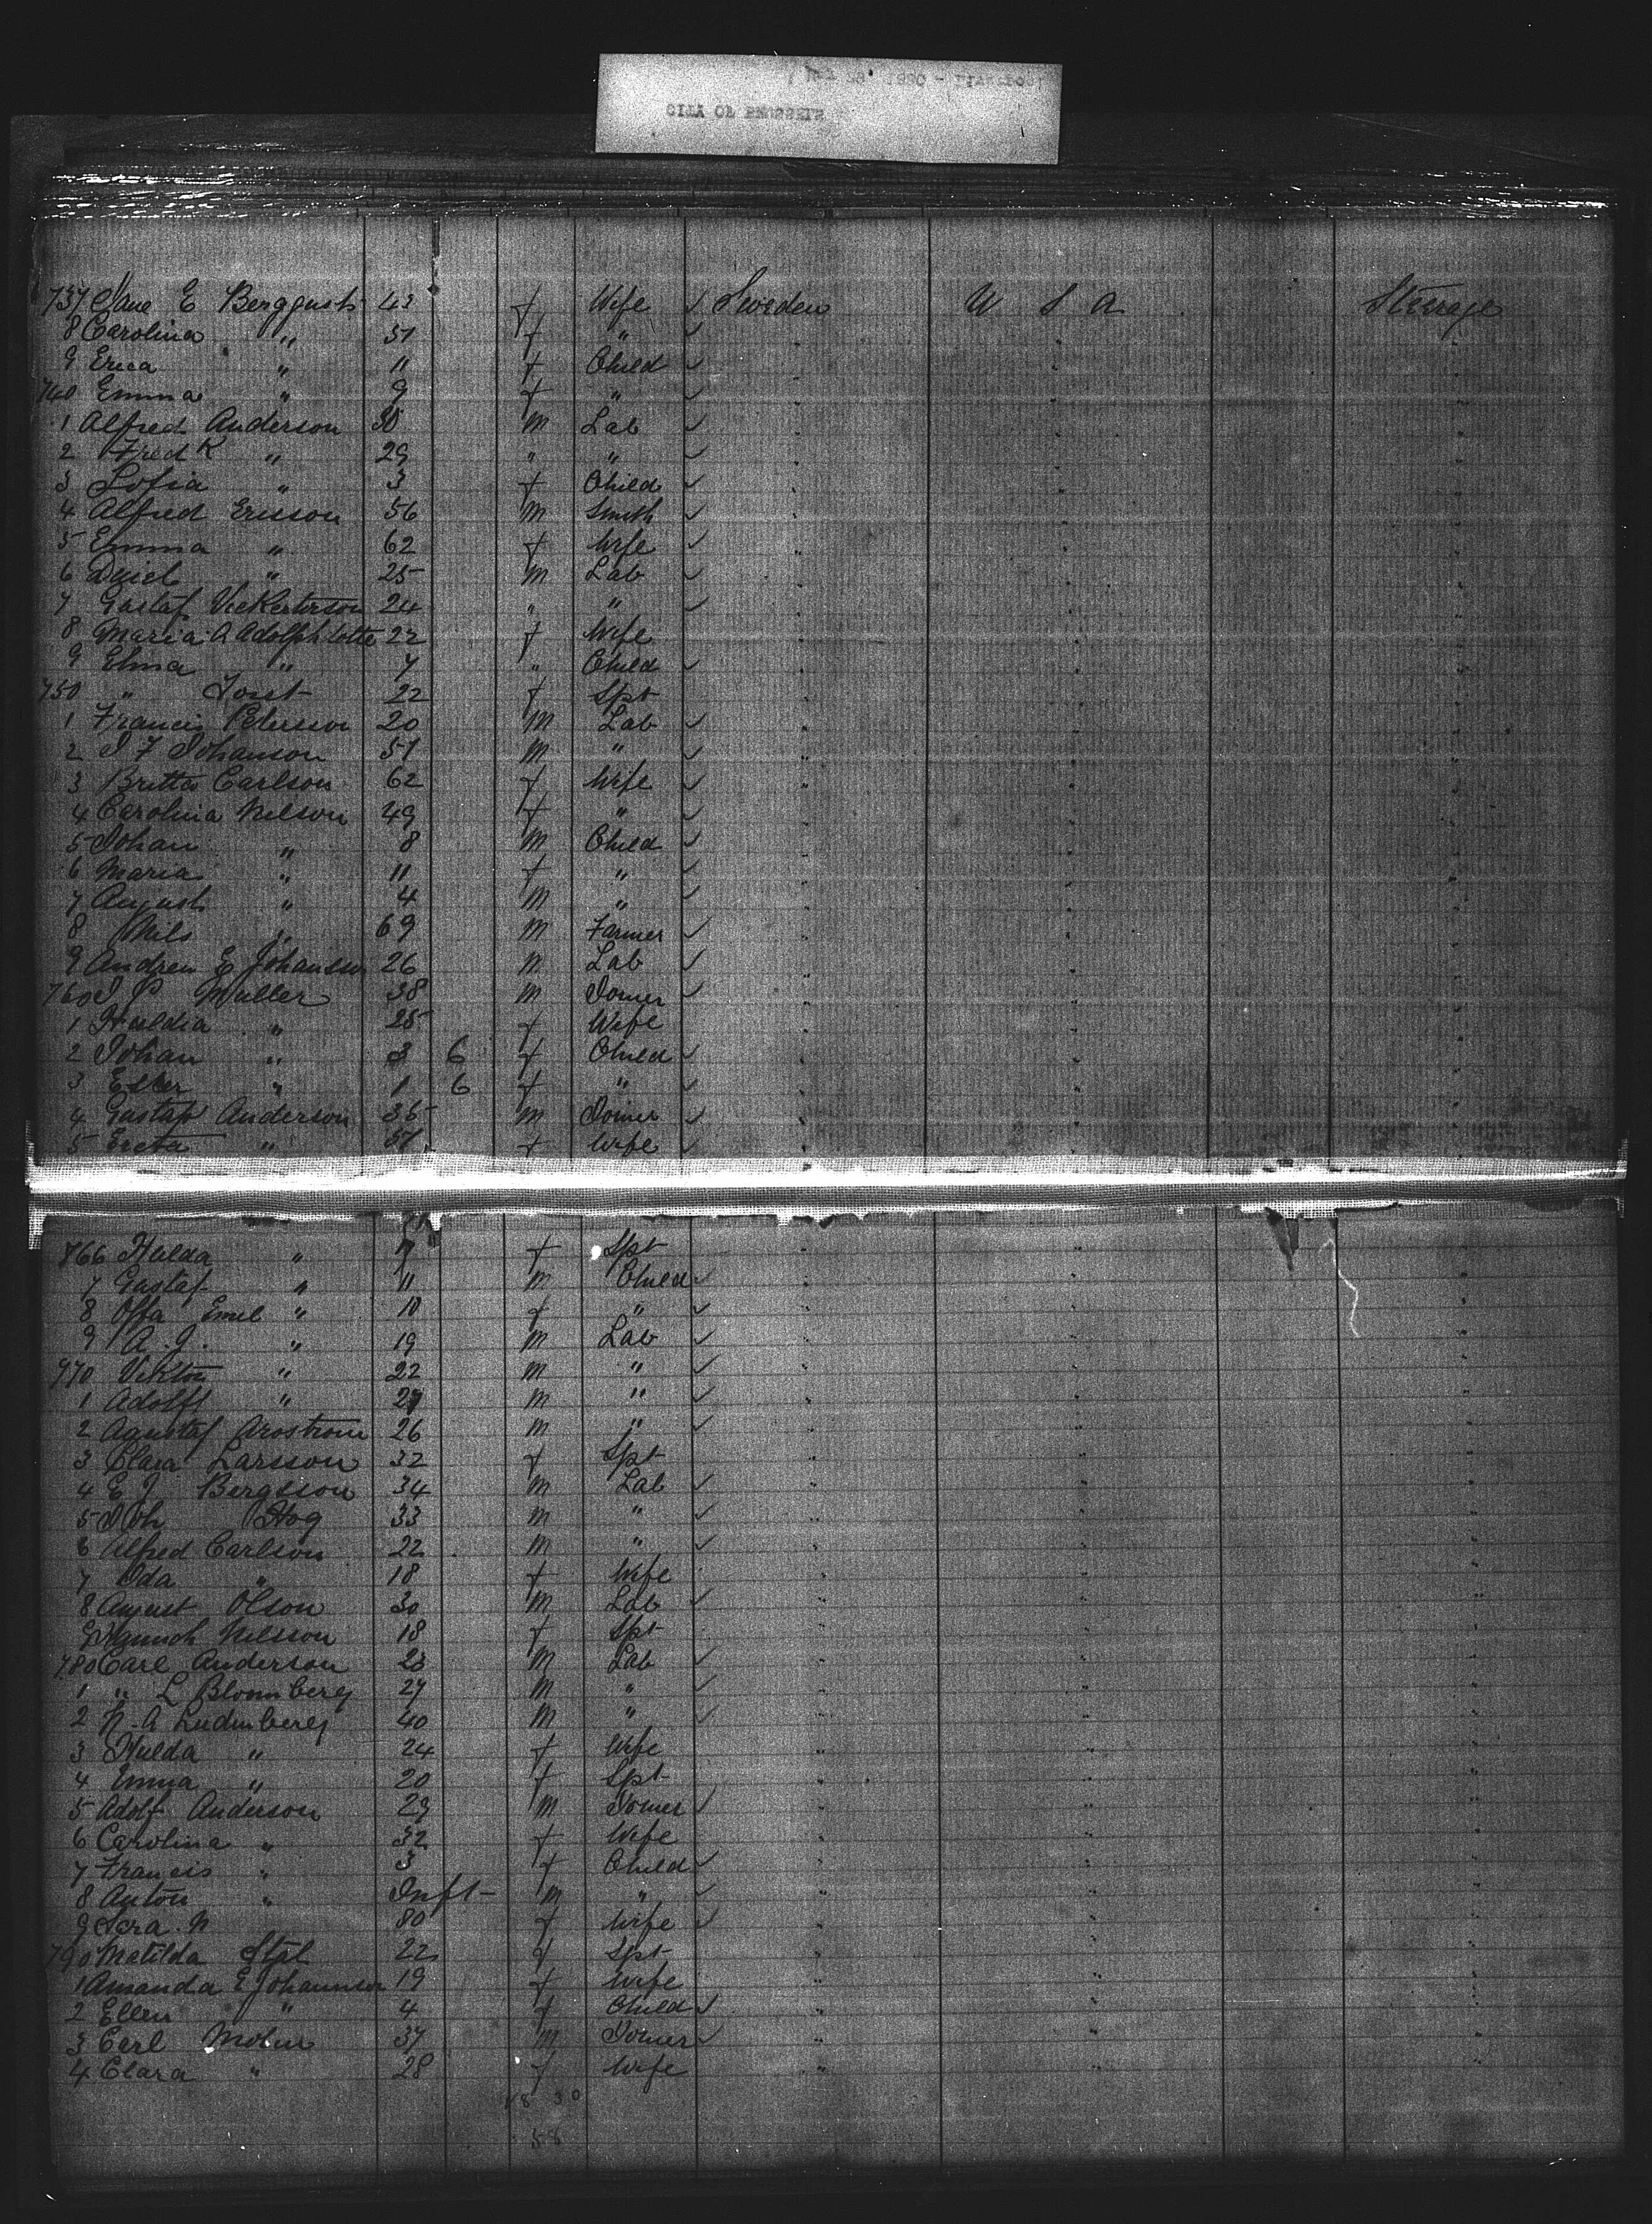 CITY OF BRUSSELS
737 Jane E Bergqust 43 f Wife ✓ Sweden U S A Steerage
8 Carolina " 51 f " ✓ " " "
9 Erica " 11 f Child ✓ " " "
740 Emma " 9 f " ✓ " " "
1 Alfred Anderson 30 m Lab ✓ " " "
2 Fred K " 29 " " ✓ " " "
3 Sofia " 3 f Child ✓ " " "
4 Alfred Ericson 56 m Smith ✓ " " "
5 Emma " 62 f Wife ✓ " " "
6 " 25 m Lab ✓ " " "
7 Gustaf 24 " " ✓ " " "
8 Maria A 22 f Wife " " "
9 Elma " 7 " Child ✓ " " "
750 " 22 f Spt " " "
1 Francis Peterson 20 m Lab ✓ " " "
2 J F Johanson 51 m " ✓ " " "
3 Britta Carlson 62 f Wife ✓ " " "
4 Carolina Nelson 49 f " ✓ " " "
5 Johan " 8 m Child ✓ " " "
6 Maria " 11 f " ✓ " " "
7 August " 4 m " ✓ " " "
8 Nils " 69 m Farmer ✓ " " "
9 Andrew E Johanson 26 m Lab ✓ " " "
760 J P Muller 38 m Joiner ✓ " " "
1 Huldia " 25 f Wife " " "
2 Johan " 3 6 f Child ✓ " " "
3 " 1 6 f " ✓ " " "
4 Gustaf Anderson 35 m Joiner ✓ " " "
5 " 51 f Wife ✓ " " "
766 Hulda " f Spt " " "
7 Gustaf " 11 m Child ✓ " " "
8 Emil " 10 f " ✓ " " "
9 A. J. " 19 m Lab ✓ " " "
770 Viktor " 22 m " ✓ " " "
1 Adolff " m " ✓ " " "
2 Agustaf Arostrom 26 m " ✓ " " "
3 Clara Larsson 32 f Spt " " "
4 E J Bergsson 34 m Lab ✓ " " "
5 Joh Hog 33 m " ✓ " " "
6 Alfred Carlson 22 m " ✓ " " "
7 Ida " 18 f Wife " " "
8 August Olson 30 m Lab ✓ " " "
9 Nilsson 18 f Spt " " "
780 Carl Anderson 23 m Lab ✓ " " "
1 " L Blomberg 27 m " ✓ " " "
2 N. A Ludinberg 40 m " ✓ " " "
3 Hulda " 24 f Wife " " "
4 Emma " 20 f Spt " " "
5 Adolf Anderson 29 m Joiner ✓ " " "
6 Carolina " 32 f Wife " " "
7 Francis " 3 f Child ✓ " " "
8 Anton " Inft m " ✓ " " "
9 Sera. N 80 f Wife ✓ " " "
790 Matilda Stal 22 f Spt " " "
1 Amanda E Johannson 19 f Wife " " "
2 Ellen " 4 f Child ✓ " " "
3 Carl Molin 37 m Joiner ✓ " " "
4 Clara " 28 f Wife " " "
30
58